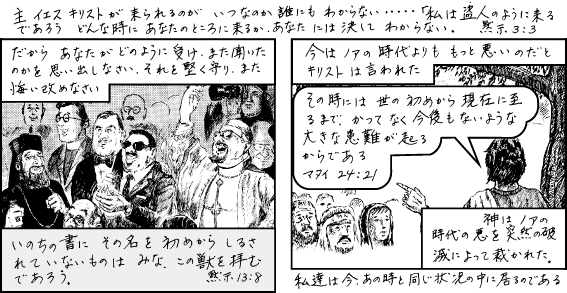 主 イエス キリストが 来られるのが いつなのか 誰にも わからない・・・・・「私は 盗人のように 来る
であろう どんな時に あなたのところに来るか、あなた には 決して わからない. 黙示. 3:3
だから あなたが どのように 受け、また聞いた
のかを 思い出しなさい. それを 堅く守り、また
悔い改めなさい
いのちの書に その名を 初めから しるさ
れて いないものは みな、この獣を 拝む
であろう。 黙示. 13:8
今は ノアの 時代よりも もっと 悪いのだと
キリストは 言われた
その時には 世の 初めから 現在に至
るまで、かつて なく 今後も ないような
大きな 患難が 起る
からである
マタイ 24:21
神は ノアの
時代の 悪を 突然の破
滅によって 裁かれた.
私達は 今、あの時と 同じ 状況の 中に 居るのである